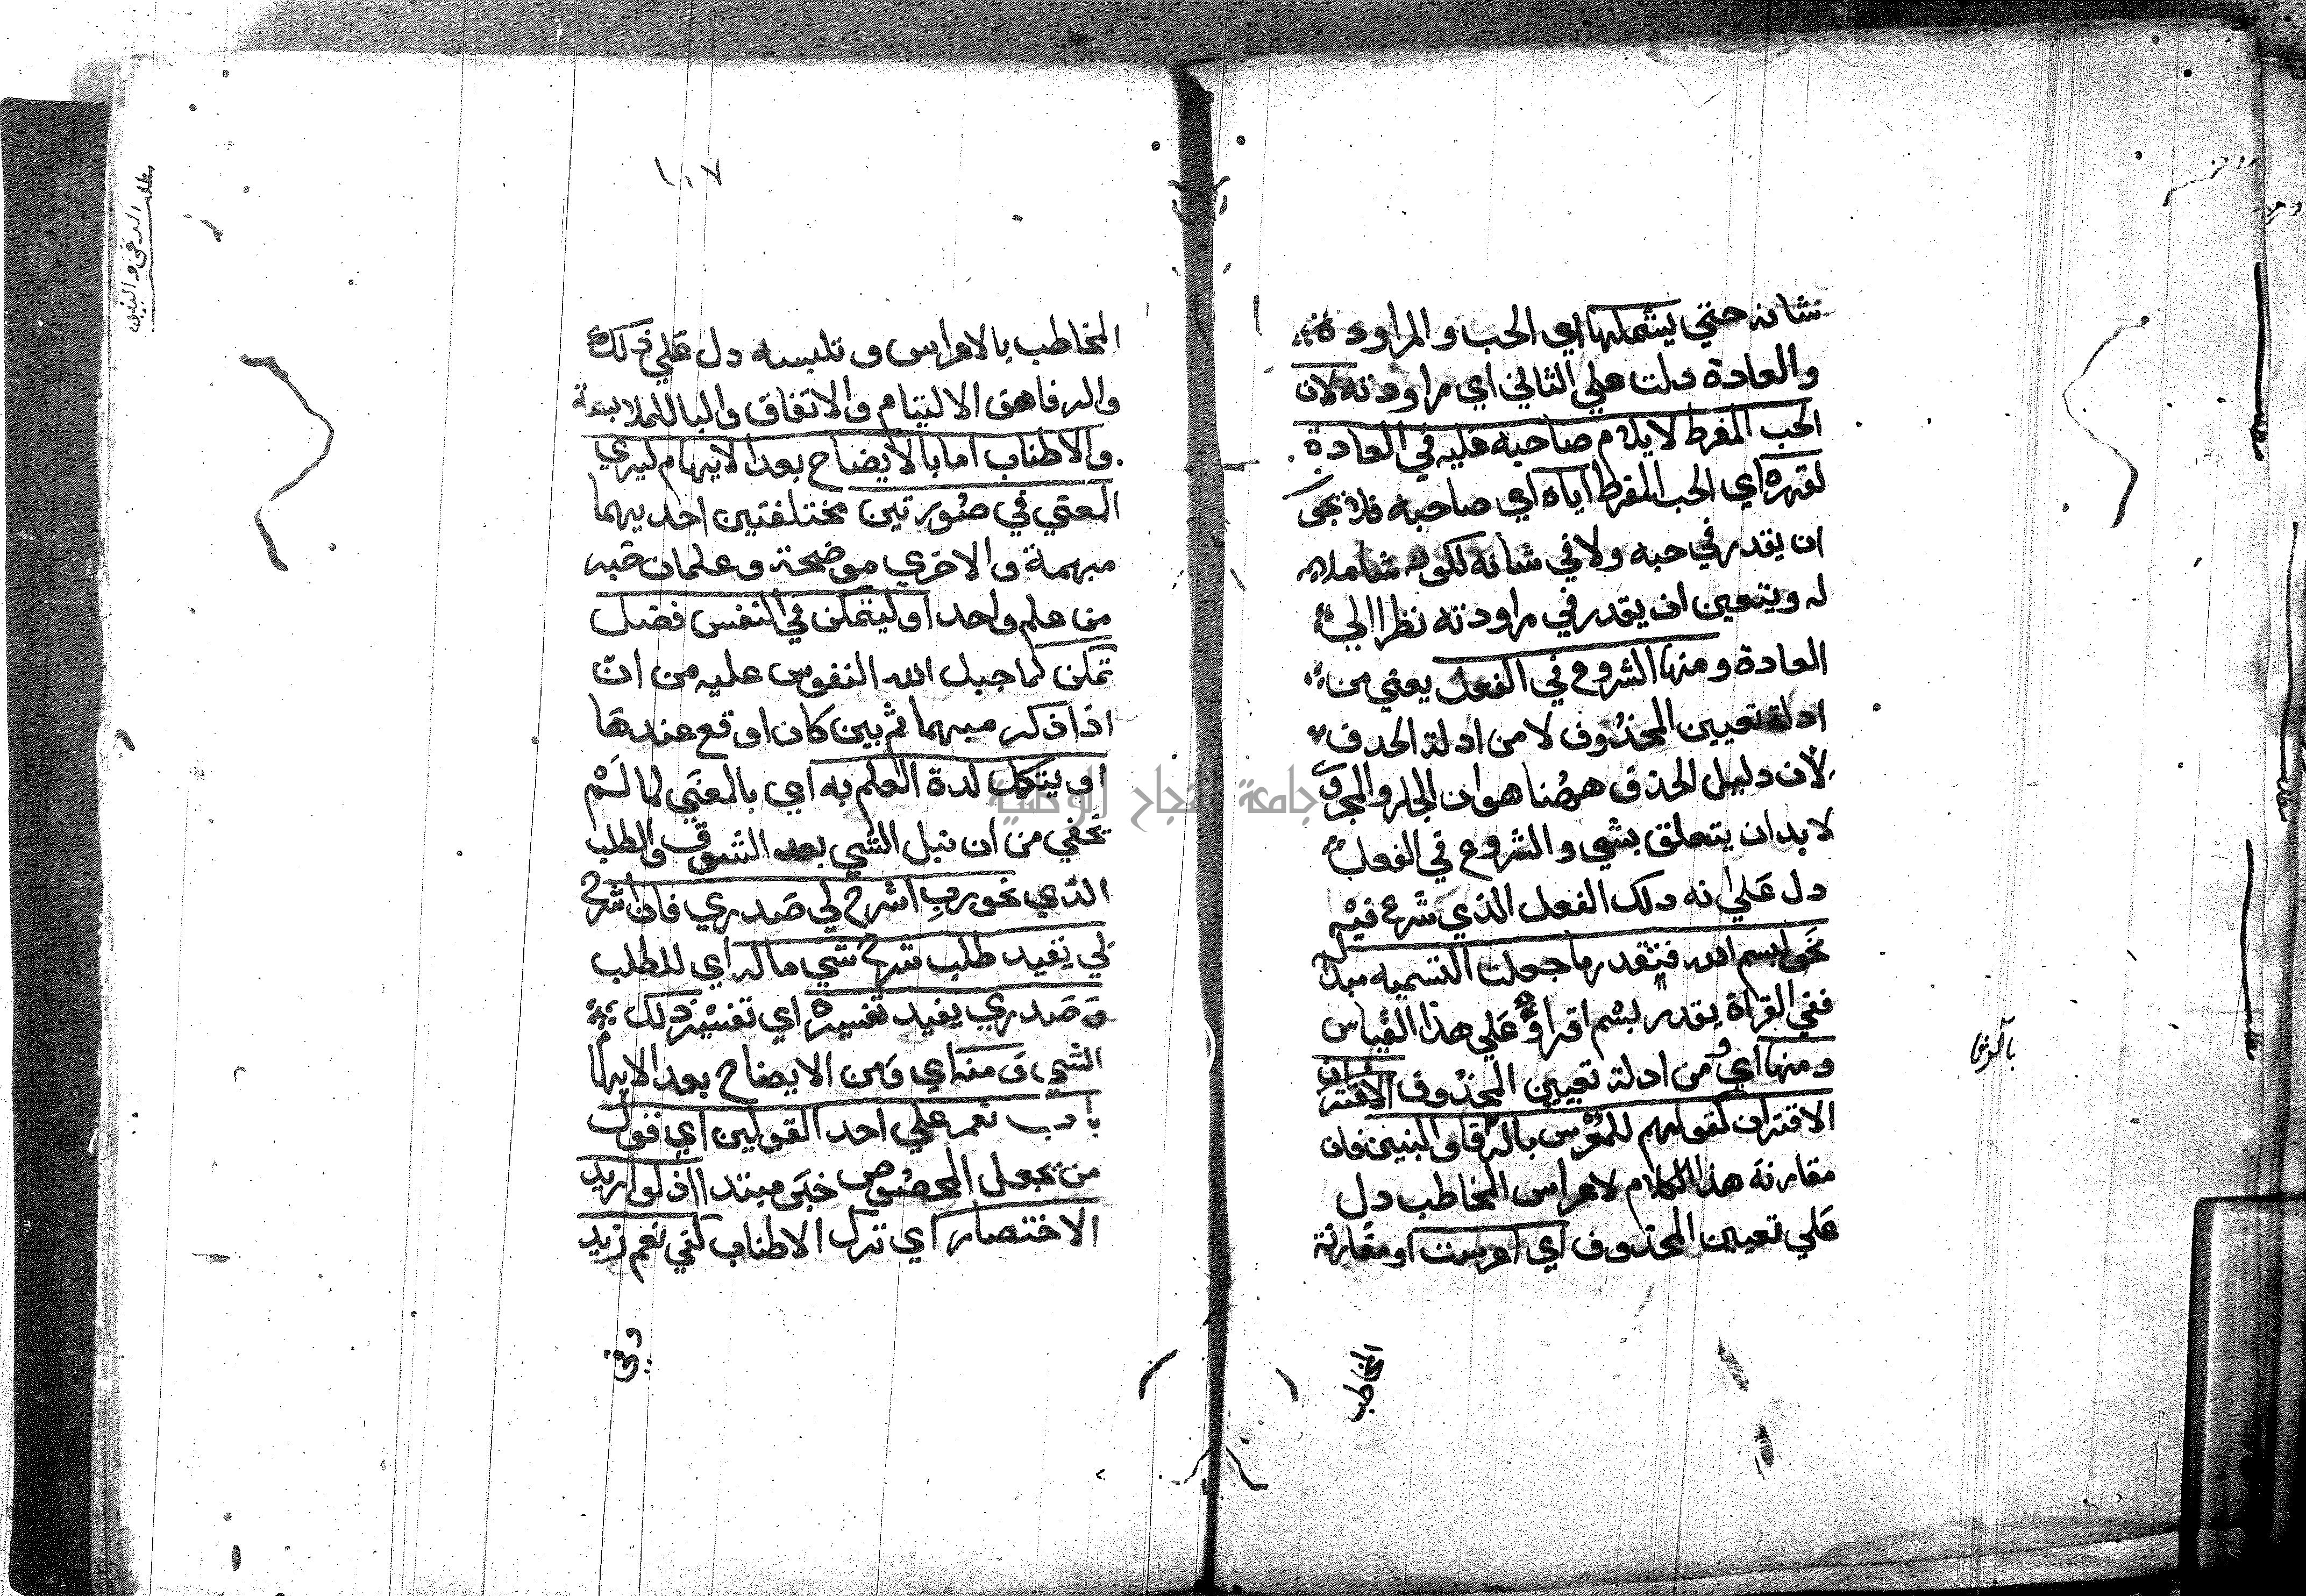 شانه حتي يشملهما اي الحب والمراودة
والعادة دلت علي الثاني اي مراودته لان
الحب المفرط لا يلام صاحبه عليه في العادة
لقهره اي الحب المفرط اياه اي صاحبه فلا يجي
ان يقدر في حبه ولا في شانه لكونه شاملا
له ويتعين ان يقدر في مراودته نظرا الي
العادة ومنها الشروع في الفعل يعني من
ادلة تعيين المحذوف لا من ادلة الحدف
لان دليل الحذف ههنا هو ان الجار والمجرو
لا بد ان يتعلق بشي والشروع في الفعل
دل علي انه دلك الفعل الذي شرع فيه
نحو بسم الله فيقدر ما جعلت التسميه مبدا
ففي القراة يقدر بسم اقرا وعلي هذا القياس
ومنها اي ومن ادلة تعيين المحذوف الاقتران
الاقتران كقولهم للمعرس بالرفا والبنين فان
مقارنة هذا الكلام لاعراس المخاطب دل
علي تعيين المحذوف اي اعرست او مقارنة
المخاطب
١٠٧
المخاطب بالاعراس وتلبسه دل علي ذلك
والرفا هو الالتيام والاتفاق والبا للملابسة
والاطناب اما بالايضاح بعد الايهام ليري
المعني في صورتين مختلفتين احديهما
مبهمة والاخري موضحة وعلمان خير
من علم واحد او ليتمكن في النفس فضل
تمكن لما جبل الله النفوس عليه من ان
اذا ذكر مبهما ثم بين كان اوقع عندها
او يتكمل لدة العلم به اي بالمعني لما لم
يخفي من ان نيل الشي بعد الشوق والطلب
الذي نحو رب اشرح لي صدري فان اشرح
لي يفيد طلب شرح شي ما له اي للطلب
وصدري يفيد تفسيره اي تفسير ذلك
الشي ومنه اي ومن الايضاح بعد الايها
باب نعم علي احد القولين اي قول
من يجعل المخصوص خبر مبتدا اذ لو اريد
الاختصار اي ترك الاطناب كفي نعم زيد
جامعة النجاح الوطنية